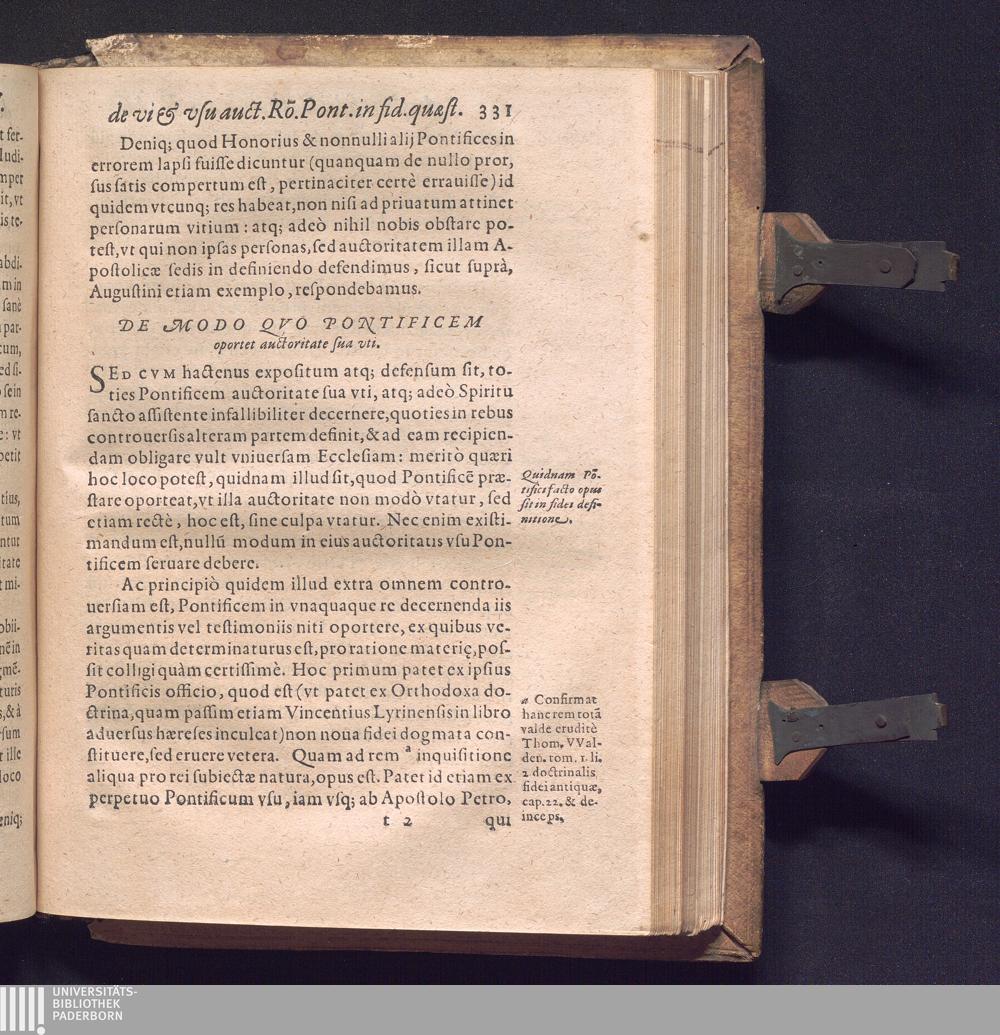 de vi & vſu auct. Rō. Pont. in fid. quæſt. 331
Deniq; quod Honorius & nonnulli alij Pontifices in
errorem lapſi fuiſſe dicuntur (quanquam de nullo pror,
ſus ſatis compertum eſt, pertinaciter certè errauiſſe) id
quidem vtcunq; res habeat, non niſi ad priuatum attinet
perſonarum vitium: atq; adeò nihil nobis obſtare po-
teſt, vt qui non ipſas perſonas, ſed auctoritatem illam A-
poſtolicæ ſedis in definiendo defendimus, ſicut ſuprà,
Auguſtini etiam exemplo, reſpondebamus.
DE MODO QVO PONTIFICEM
oportet auctoritate ſua vti.
SED CVM hactenus expoſitum atq; defenſum ſit, to-
ties Pontificem auctoritate ſua vti, atq; adeò Spiritu
ſancto aſſiſtente infallibiliter decernere, quoties in rebus
controuerſis alteram partem definit, & ad eam recipien-
dam obligare vult vniuerſam Eccleſiam: meritò quæri
hoc loco poteſt, quidnam illud ſit, quod Pontificē præ-
ſtare oporteat, vt illa auctoritate non modò vtatur, ſed
etiam rectè, hoc eſt, ſine culpa vtatur. Nec enim exiſti-
mandum eſt, nullū modum in eius auctoritatis vſu Pon-
tificem ſeruare debere.
Quidnam Pō-
tifici facto opus
ſit in fidei defi-
nitione.
Ac principiò quidem illud extra omnem contro-
uerſiam eſt, Pontificem in vnaquaque re decernenda iis
argumentis vel teſtimoniis niti oportere, ex quibus ve-
ritas quam determinaturus eſt, pro ratione materię, poſ-
ſit colligi quàm certiſſimè. Hoc primum patet ex ipſius
Pontificis officio, quod eſt (vt patet ex Orthodoxa do-
ctrina, quam paſſim etiam Vincentius Lyrinenſis in libro
aduerſus hæreſes inculcat) non noua fidei dogmata con-
ſtituere, ſed eruere vetera. Quam ad rem a inquiſitione
aliqua pro rei ſubiectæ natura, opus eſt. Patet id etiam ex
perpetuo Pontificum vſu, iam vſq; ab Apoſtolo Petro,
a Confirmat
hanc rem totā
valde eruditè
Thom. VVal-
den. tom. 1. li.
2 doctrinalis
fidei antiquæ,
cap. 22. & de-
inceps,
t 2 qui
UNIVERSITÄTS-
BIBLIOTHEK
PADERBORN